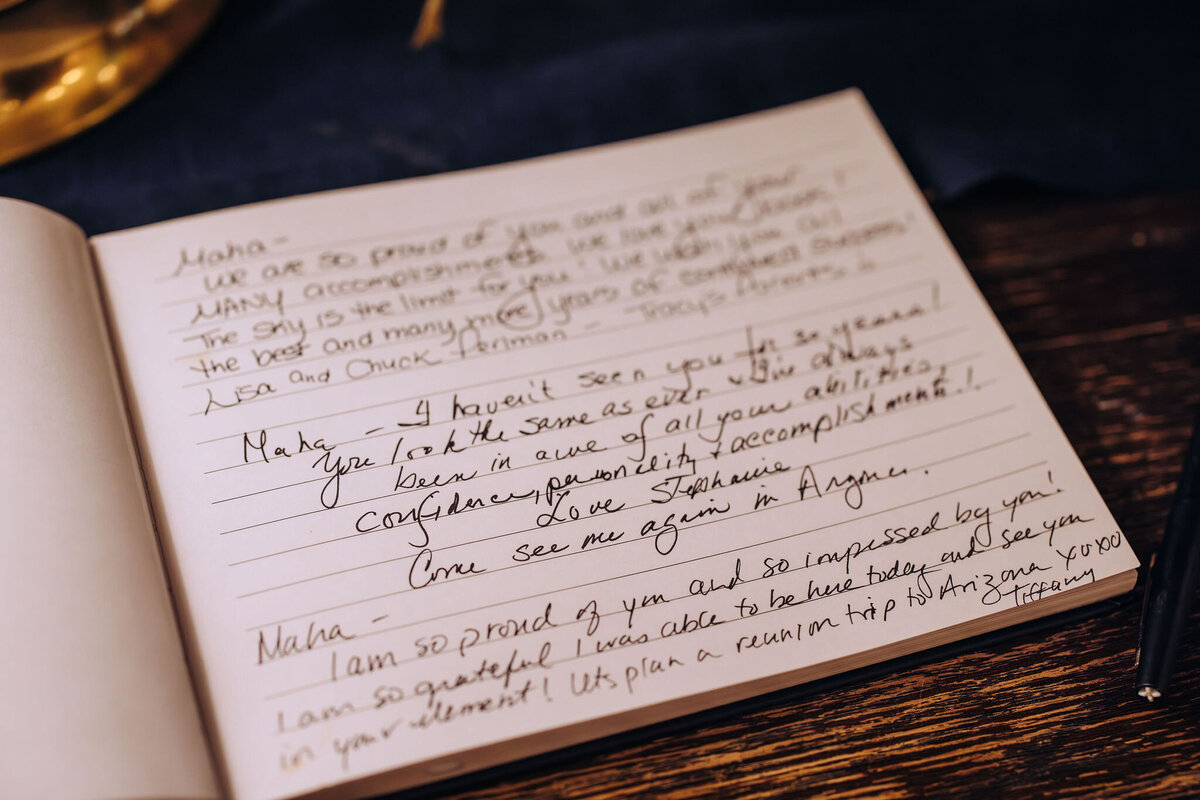 Maha -
We are so proud of you and all of your
MANY accomplishments. We love your vision!
The sky is the limit for you! We wish you all
the best and many more years of continued success!
Lisa and Chuck Perlman - Tracy's Parents
Maha - I haven't seen you for so years!
You look the same as ever & I've always
been in awe of all your abilities,
confidence, personality & accomplishments!!
Love Stephanie
Come see me again in
Maha -
I am so proud of you and so impressed by you!
I am so grateful I was able to be here today and see you
in your element! Lets plan a reunion trip to Arizona XOXO
Tiffany